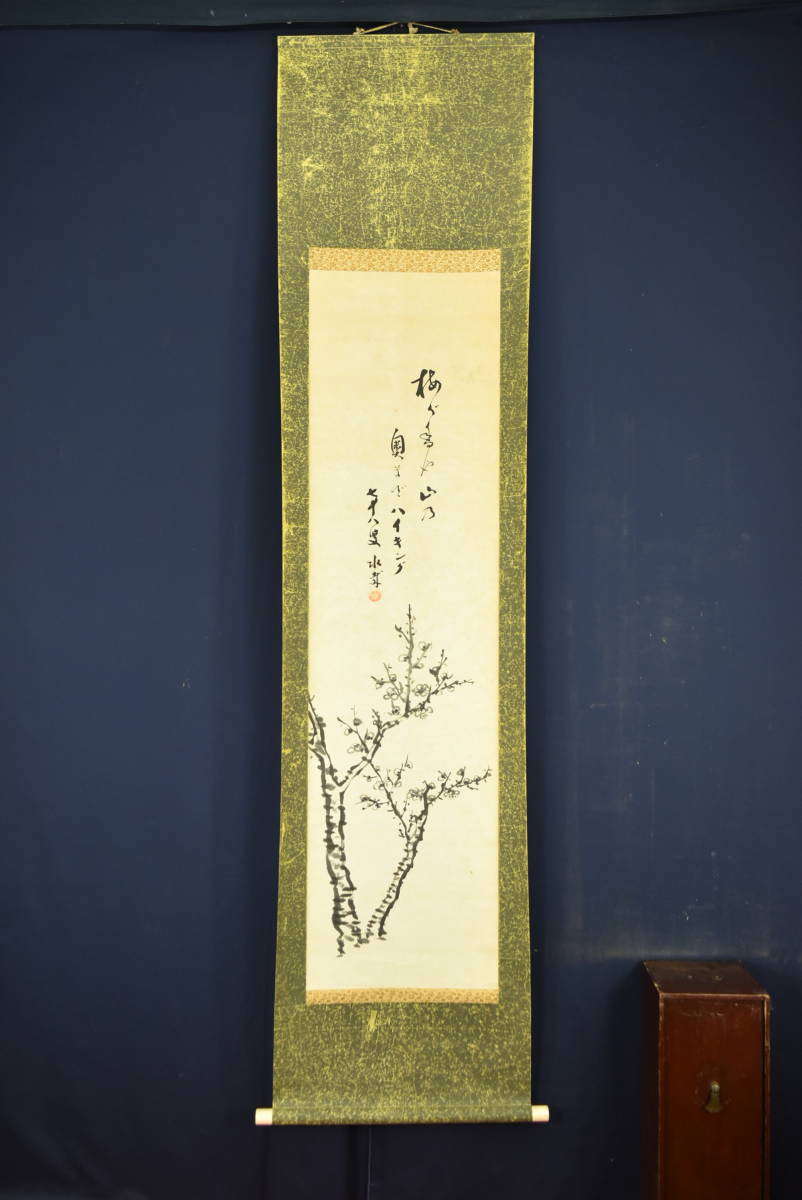 梅が香や山乃
奥までハイキング
七十八叟 水